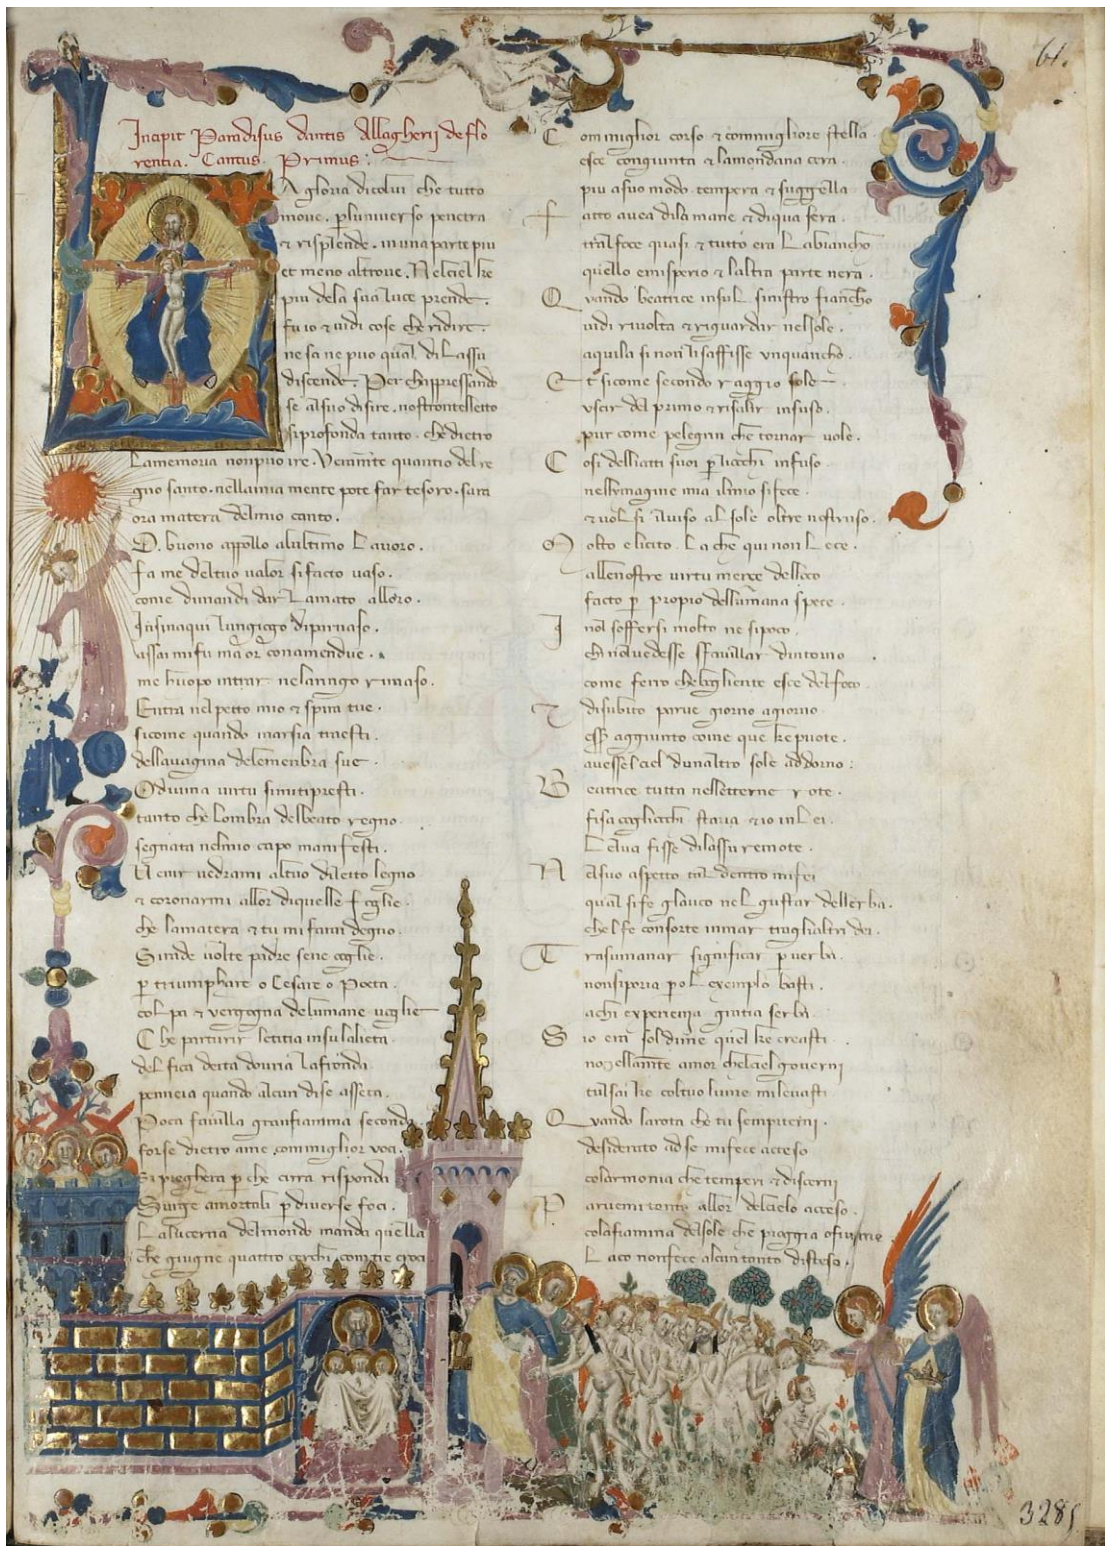 61.
Incipit Paradisus dantis Allagherij de flo
rentia. Cantus. Primus:
La gloria dicolui che tutto
moue. pluniuerso penetra
& risplende. inuna parte piu
et meno altroue. Nelciel ke
piu dela sua luce prende.
fu io & uidi cose che ridire.
ne sa ne puo qual dilassu
discende. Per chappressando
se alsuo disire. nostrontelletto
siprofonda tanto. che dietro
Lamemoria nonpuo ire. Veramte quantio delre
gno santo. nellamia mente pote far tesoro. sara
ora matera delmio canto.
O. buono appollo alultimo Lauoro.
fa me deltuo ualor sifacto uaso.
come dimandi dar Lamato alloro.
Insinaqui lungiogo diparnaso.
assai mifu ma or conamendue.
me huopo intrar nelaringo rimaso.
Entra nel petto mio & spira tue.
sicome quando marsia traesti.
dellauagina delemenbra sue.
O diuina uirtu simitipresti.
tanto che lombra delbeato regno.
segnata nelmio capo manifesti.
Uenir uedrami altuo diletto legno
& coronarmi allor diquelle foglie.
che lamatera & tu mi farai degno.
Sirade uolte padre sene coglie.
p triumphare o Cesare o Poeta.
colpa & vergogna delumane uoglie
Che parturir letitia insulalieta.
delfica deita douria lafronda.
penneia quando alcun dise asseta.
Poca fauilla granfiamma seconda.
forse dietro ame conmiglior voci.
Si pregherra p che cirra risponda
Surge amortali p diuerse foci.
La lucerna delmondo manda quella
che giugne quattro cerchi contre croci
Com miglior corso & commigliore stella.
esce congiunta & lamondana cera.
piu asuo modo. tempera & suggella
Fatto auea dila mane & diqua sera.
tral foce quasi & tutto era Labiancho
quello emisperio & laltra parte nera.
Quando beatrice insul sinistro fiancho
uidi riuolta & riguardar nelsole.
aquila si non lisaffisse unquancho.
Et sicome secondo raggio sole
uscir del primo & risalir insuso.
pur come pelegrin che tornar uole.
Cosi dellatti suoi p liocchi infuso
nellymagine mia ilmio sifece.
& uolsi iluiso al sole oltre nostruso.
Molto e licito La che qui non Lece.
allenostre uirtu merce delloco
facto p propio dellumana spece.
I nol soffersi molto ne sipoco.
chi noluedesse sfauillar dintorno
come ferro chebogliente esce delfoco.
& disubito parue giorno agiorno
essere aggiunto come que ke puote.
auesse lciel dunaltro sole addorno:
Beatrice tutta nelletterne rote.
fisa cogliocchi staua & io inLei.
Leluci fisse dilassu remote.
Nelsuo aspetto tal dentro mifei
qual sife glauco nel gustar dellerba.
chelfe consorte inmar traglialtri dei.
Trasumanar significar p uerba.
nonsiporia pero L exemplo basti.
achi experienza gratia serba.
S io era sol dime quel ke creasti.
nouellamte amor chelciel gouerni
tulsai ke coltuo lume mileuasti
Quando larota che tu sempiterni.
desiderato adse mifece acceso
colarmonia che temperi & discerni
Paruemi tanto allor delcielo acceso.
dela fiamma delsole che pioggia ofiume
Laco nonfece alcun tanto disteso.
328